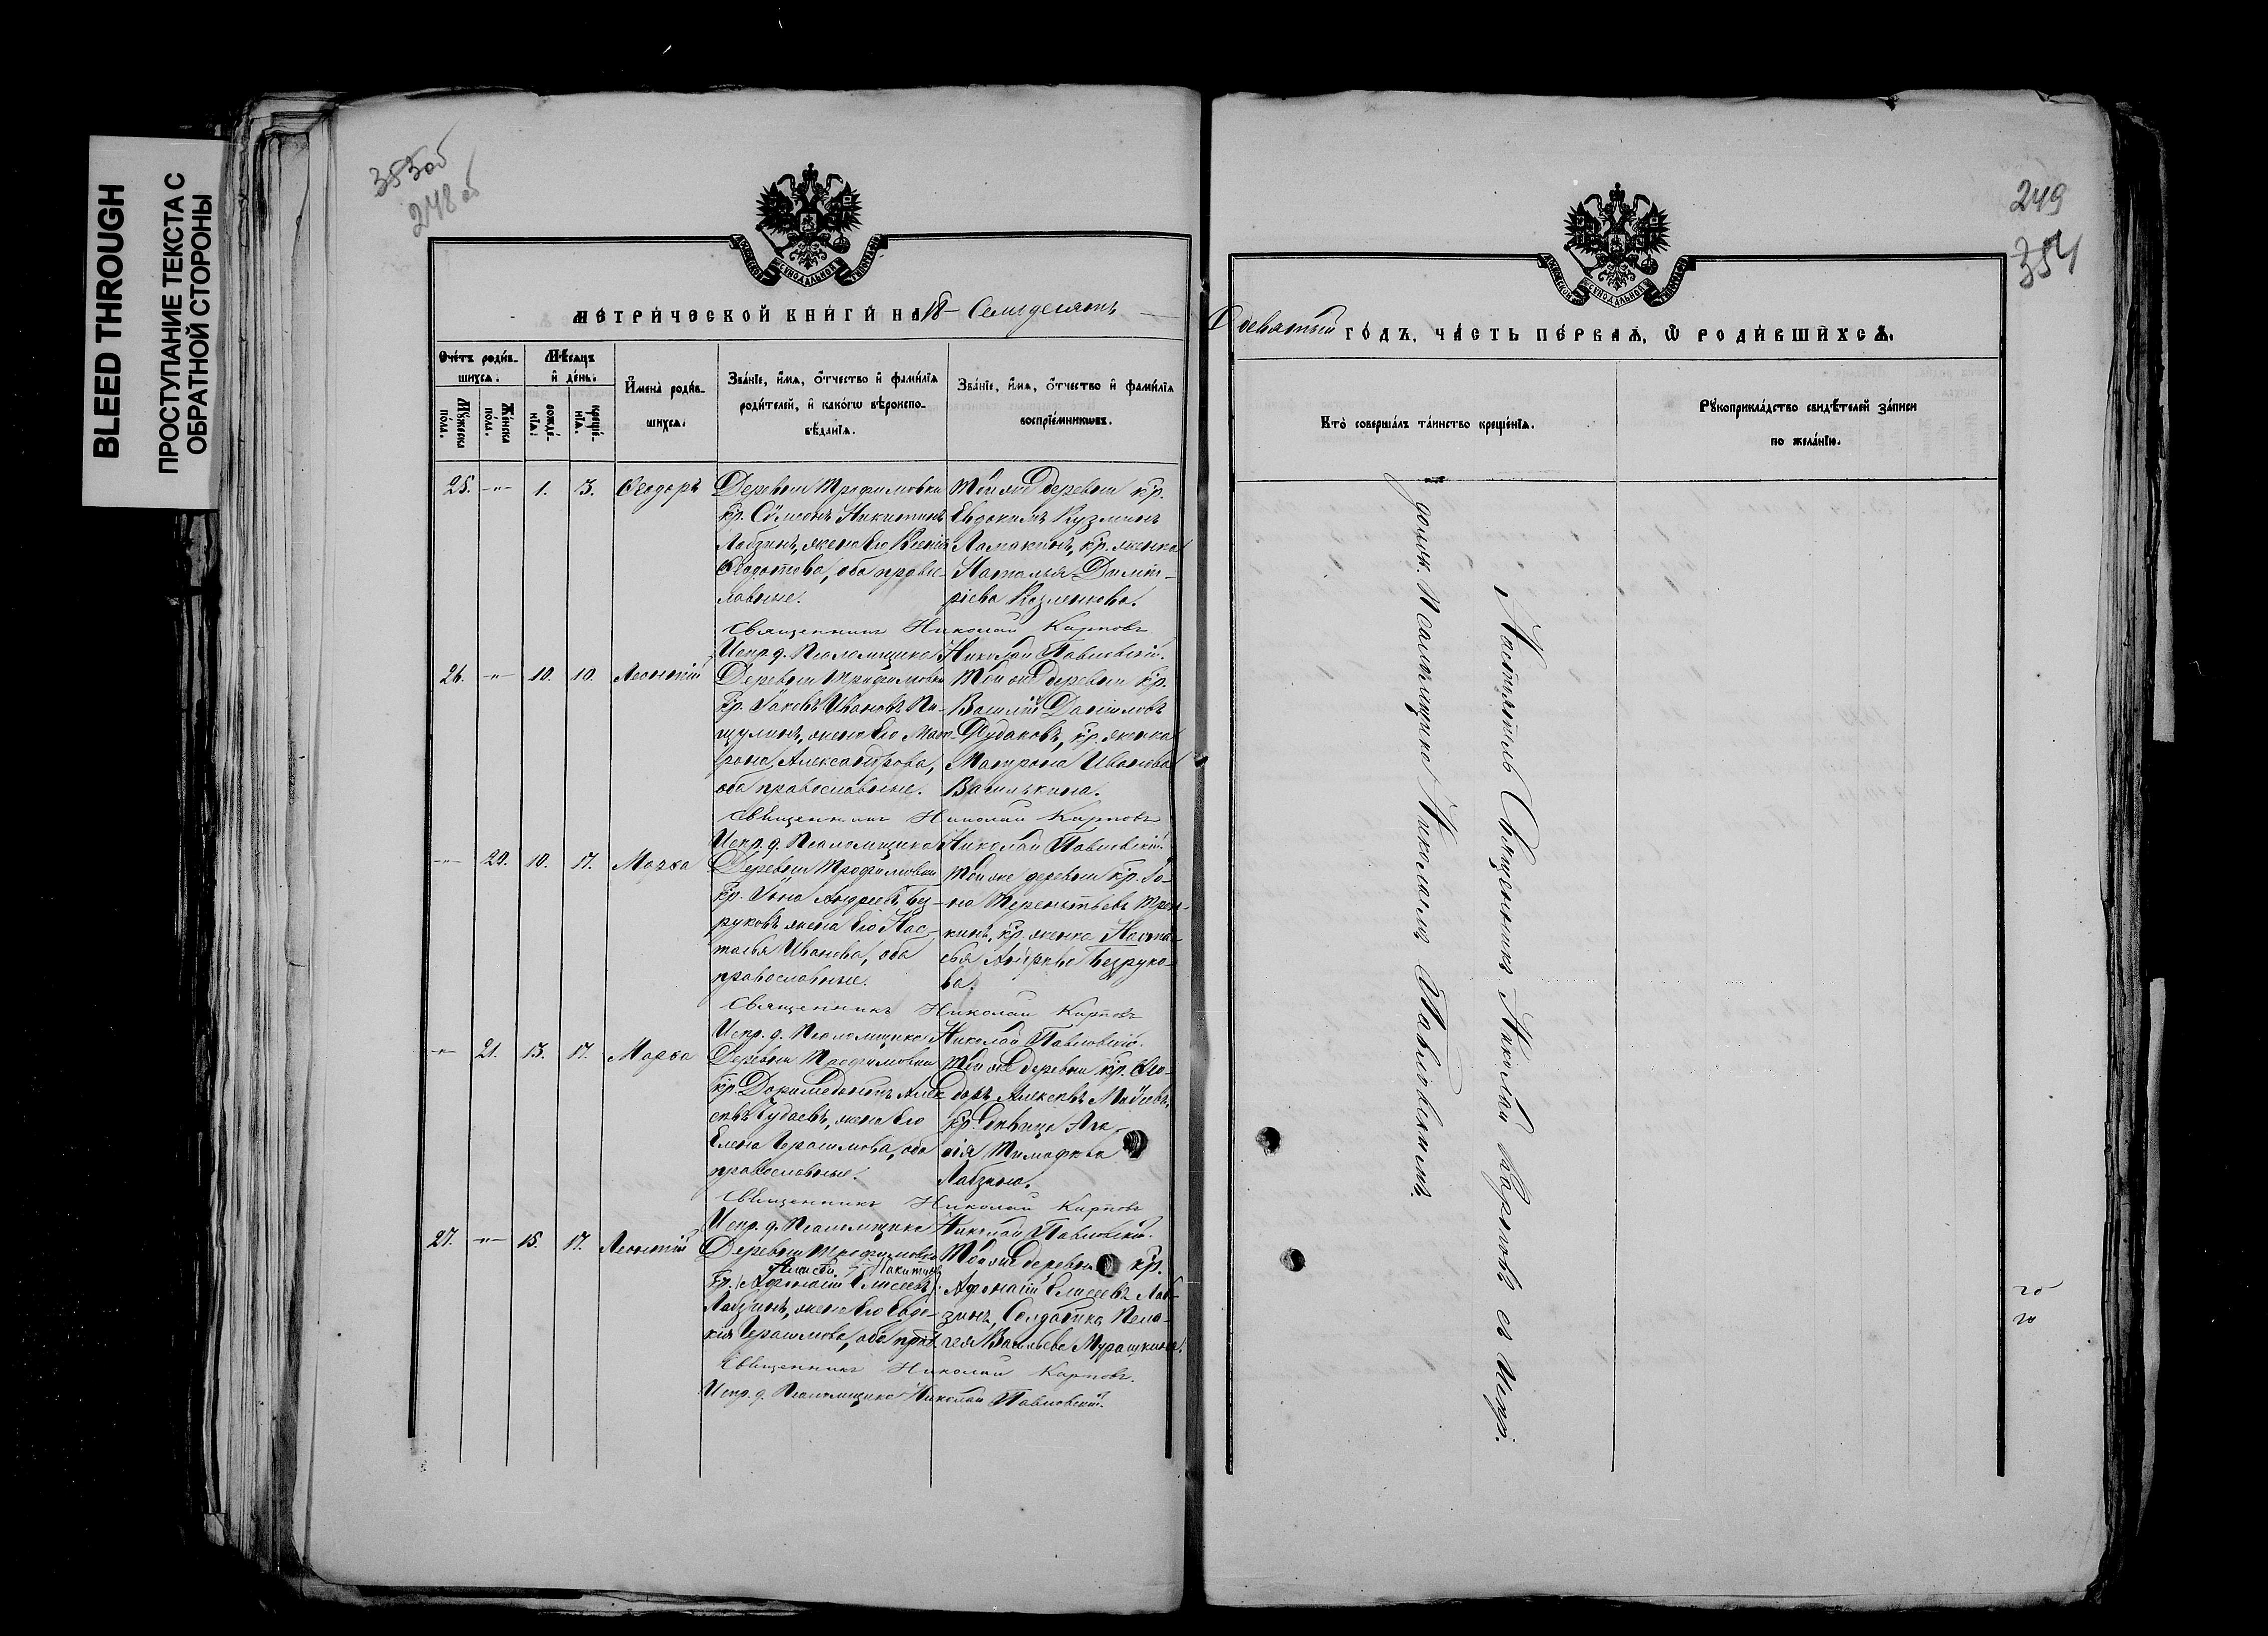 BLEED THROUGH
ПРОСТУПАНИЕ ТЕКСТА С
ОБРАТНОЙ СТОРОНЫ
353об
248об
МЕТРИЧЕСКОЙ КНИГИ НА 18– Семьдесятъ
Счетъ родив-
шихся.
Мужеска
пола.
Женска
пола.
Мѣсяцъ
и день.
рожде-
нія.
креще-
нія.
Имена родив-
шихся.
Званіе, имя, отчество и фамилія
родителей, и какого вѣроиспо-
вѣданія.
Званіе, имя, отчество и фамилія
воспріемниковъ.
25. –"– 1. 3. Ѳеодоръ
Деревни Трофимовки
кр. Сѵмеонъ Никитинъ
Лабзинъ, жена его Ксенія
Ѳедотова, оба право-
славные.
Той же деревни кр.
Евдокимъ Кузминъ
Ламакинъ, кр. женка
Наталья Димит-
ріева Козленкова.
Священникъ Николай Карповъ
Испр. д. Псаломщика Николай Павловскій.
26. –"– 10. 10. Леонтій
Деревни Трофимовки
кр. Іаковъ Ивановъ Пи-
щулинъ, жена его Мат-
рона Александрова,
оба православные.
Той же деревни кр.
Василій Даниловъ
Рудаковъ, кр. женка
Матрона Иванова
Василькина.
Священникъ Николай Карповъ
Испр. д. Псаломщика Николай Павловскій.
–"– 20. 10. 17. Марѳа
Деревни Трофимовки
кр. Іона Андреевъ Без-
руковъ жена его Нас-
тасья Иванова, оба
православные.
Той же деревни кр. Іо-
на Терентьевъ
кинъ, кр. женка Наста-
сья Безруко-
ва.
Священникъ Николай Карповъ
Испр. д. Псаломщика Николай Павловскій.
–"– 21. 13. 17. Марѳа
Деревни Трофимовки
кр. Доримедонтъ Алек-
сѣевъ Чудаевъ, жена его
Елена Герасимова, оба
православные.
Той же деревни кр. Ѳео-
доръ Алексѣевъ
кр. дѣвица
Тимофѣева
Лабзина.
Священникъ Николай Карповъ
Испр. д. Псаломщика Николай Павловскій.
27. –"– 15. 17. Леонтій
Деревни Трофимовки
Никитинъ
кр. (Афанасій Елисеевъ)
Лабзинъ, жена его Евдо-
кія Герасимова, оба прав.
Той же деревни кр.
Афанасій Елисеевъ Лаб-
зинъ, Солдатка Пела-
гея Васильева Мурашкина.
Священникъ Николай Карповъ.
Испр. д. Псаломщика Николай Павловскій.
249
354
девятый ГОДЪ, ЧАСТЬ ПЕРВАЯ, Ѡ РОДИВШИХСЯ.
Кто совершалъ таинство крещенія.
Рукоприкладство свидѣтелей записи
по желанію.
Настоятель Священникъ Николай Карповъ съ Испр.
должн. Псаломщика Николаемъ Павловскимъ.